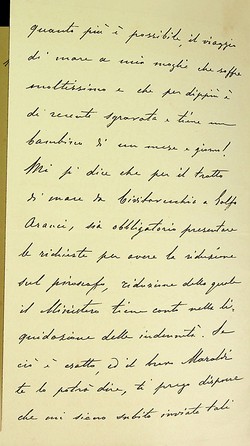 quanto più è possibile, il viaggio
di mare a mia moglie che soffre
moltissimo e che per dippiù è
di recente sgravata e tiene un
bambino di un mese e giorni!
Mi si dice che per il tratto
di mare da Civitavecchia a Golfo
Aranci, sia obbligatorio presentare
le richieste per avere la riduzione
sul piroscafo, riduzione della quale
il Ministero tiene conto nella li-
quidazione delle indennità. Se
ciò è esatto, ed il bravo
te lo potrà dire, ti prego disporre
che mi siano subito inviate tali